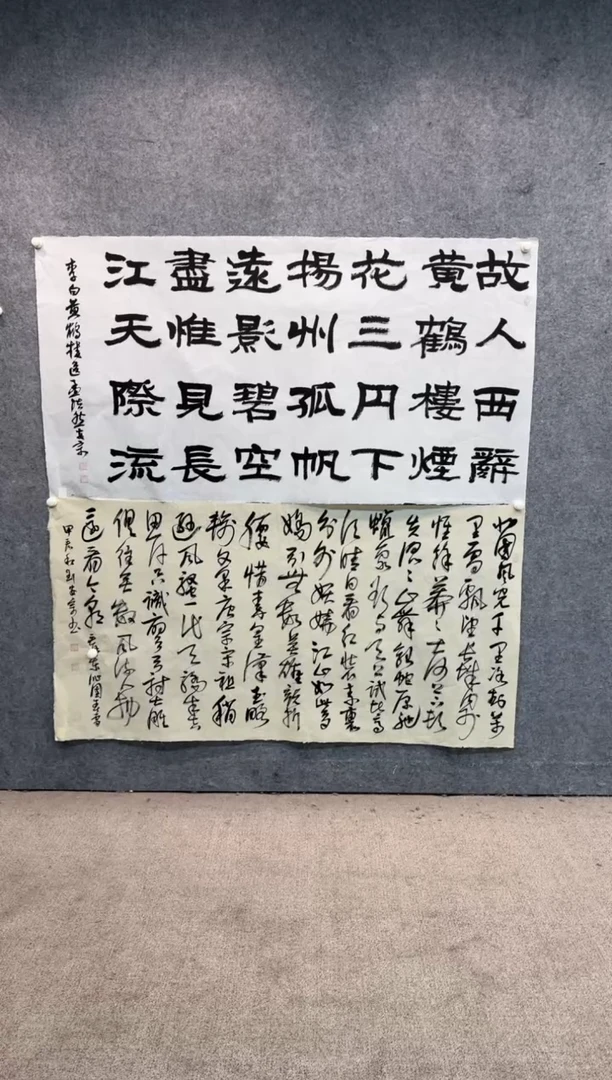 故人西辭
黃鶴樓煙
花三月下
揚州孤帆
遠影碧空
盡惟見長
江天際流
李白黃鶴樓送孟浩然
北國風光千里冰封萬
里雪飄望長城內外
惟餘莽々大河上下頓
失滔々山舞銀蛇原馳
蠟象欲與天公試比高
須晴日看紅裝素裹
分外妖嬈江山如此多
嬌引無數英雄競折
腰惜秦皇漢武略
輸文采唐宗宋祖稍
遜風騷一代天驕成吉
思汗只識彎弓射大雕
俱往矣數風流人物
還看今朝 毛澤東沁園春雪
甲辰秋